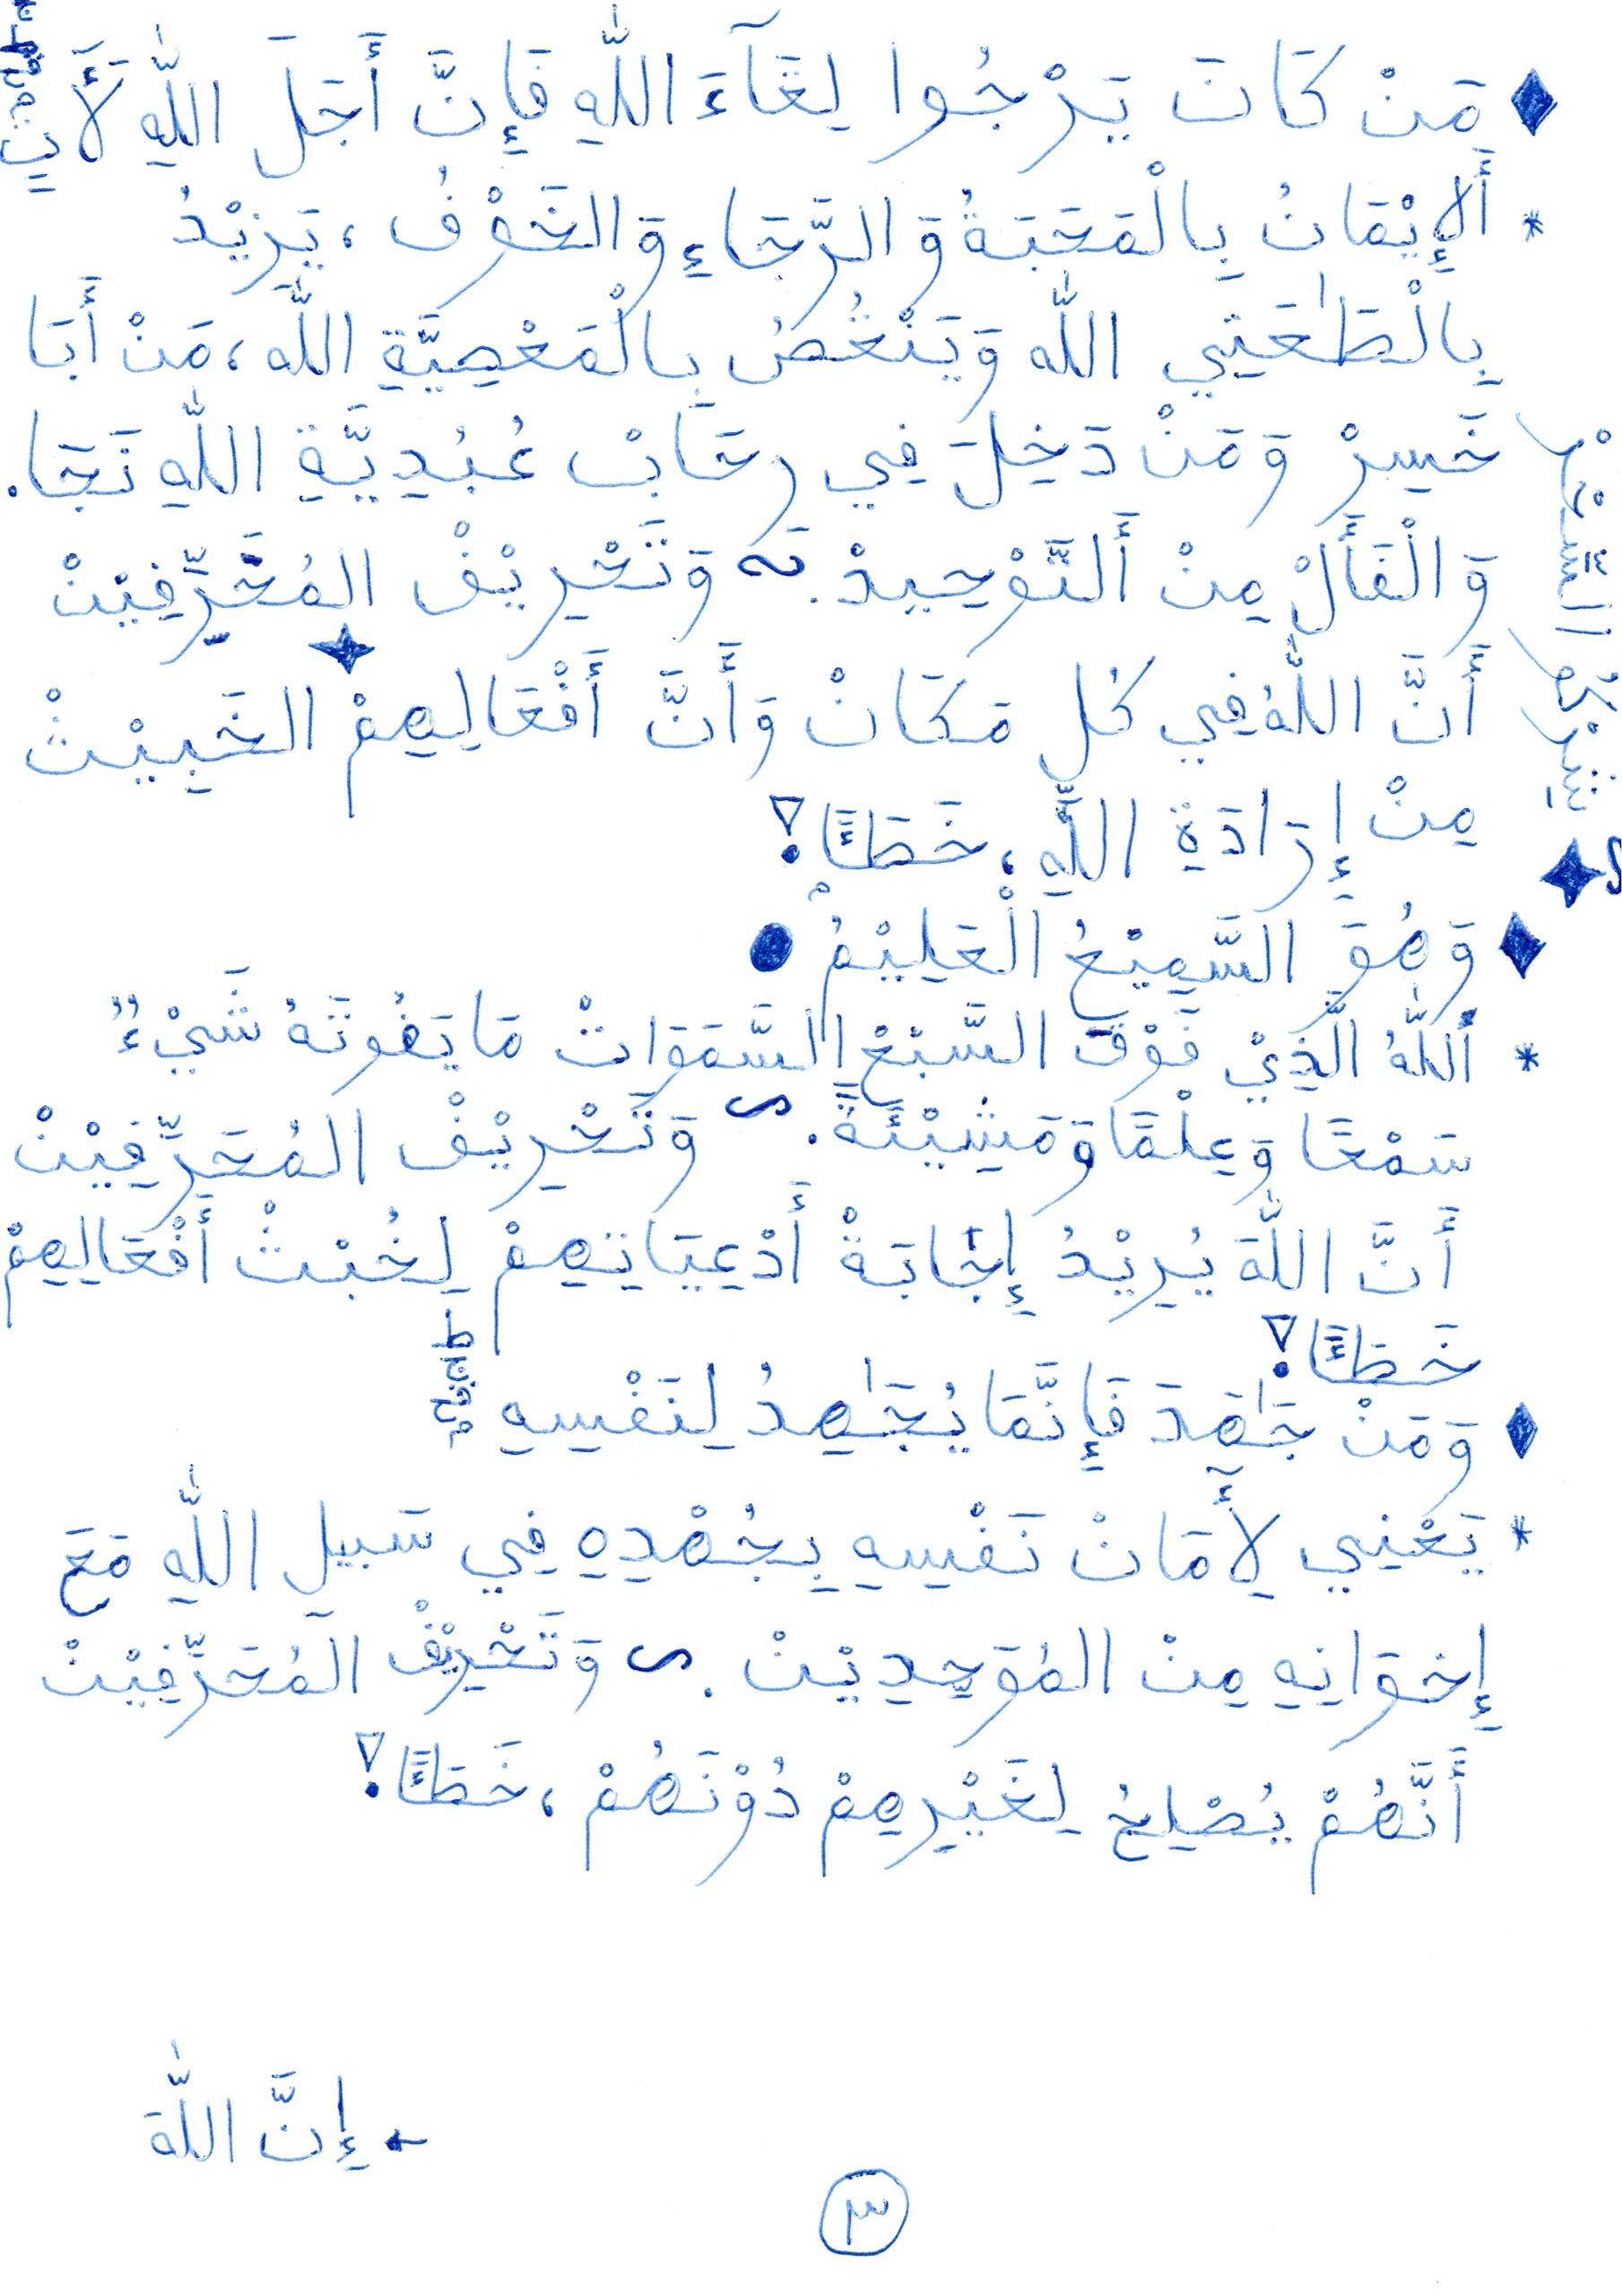 ♦ مَنْ كَانَ يَرْجُوا لِقَآءَ اللّٰهِ فَإِنَّ أَجَلَ اللّٰهِ لَأَتٍ
* أَلإِيْمَانُ بِالْمَحَبَةُ وَ الرَّجَاءِ وَ الخَوْفُ ، يَزِيْدُ
بِالْطَٰعَتِي اللّٰه وَ يَنْغُصُ بِالْمَعْصِيَّةِ اللّٰه ، مَنْ أَبَا
خَسِرْ وَ مَنْ دَخِلَ فِي رِحَابْ عُبُدِيَّةِ اللّٰهِ نَجَا.
وَ الْفَأَلْ مِنْ أَلتَّوْحِيدْ. وَ تَحْرِيْفْ المُحَرِّفِيْنْ
أَنَّ اللّٰهُ فِي كُلِ مَكَانْ وَ أَنَّ أَفْعَالِهِمْ الخَبِيْثْ
مِنْ إِرَادَةِ اللّٰهِ ، خَطَئًا!
♦ وَ هُوَ السَّمِيْعُ الْعَلِيْمُ ●
* أَللّٰهُ الَّذِيْ فَوْقَ السَّبْعِ السَّمَوَاتْ مَا يَفُوتَهُ شَيْءٌ
سَمْعًا وَ عِلْمًا وَ مَشِيْئَةً. وَ تَحْرِيْفْ المُحَرِّفِيْنْ
أَنَّ اللّٰهَ يُرِيْدُ إِجَابَةْ أَدْعِيَاتِهِمْ لِخُبْثْ أَفْعَالِهِمْ
خَطَئًا!
♦ وَ مَنْ جَٰهَدَ فَإِنَّمَا يُجَٰهِدُ لِنَفْسِهِ
* يَعْنِي لِأَمَانْ نَفْسِهِ بِجُهْدِهِ فِي سَبِيلِ اللّٰهِ مَعَ
إِخوَانِهِ مِنْ المُوَحِدِيْنْ. وَ تَحْرِيْفْ المُحَرِّفِيْنْ
أَنَّهُمْ يُصْلِحُ لِغَيْرِهِمْ دُوْنَهُمْ ، خَطَئًا!
← إِنَّ اللّٰهَ
٣